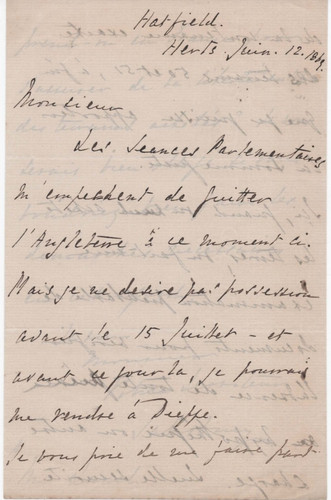 Hatfield.
Herts. Juin. 12. 1869
Monsieur
Les Seances Parlementaires
m'empechent de quitter
l'Angleterre à ce moment ci.
Mais je ne desire pas possession
avant le 15 Juillet - et
avant ce jour la, je pourrai
me rendre à Dieppe.
Je vous prie de me faire part